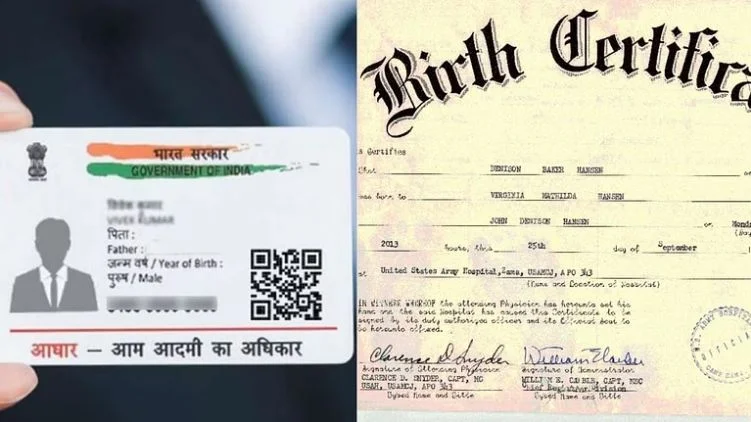 भारत सरकार
GOVERNMENT OF INDIA
पिता :
Father :
जन्म वर्ष / Year of Birth :
पुरुष / Male
आधार – आम आदमी का अधिकार
Birth Certifica
s Certifies
hat DENISON BAKER HANSEN
was born to VIRGINIA MATHILDA HANSEN
JOHN DENISON HANSEN on Mond
2013 hours, this 25th day of September
at United States Army Hospital, USAMOJ, APO 343
(Name and Location of Hospital)
IN WITNESS WHEREOF the attending Physician has hereunto set his
hand and the said Hospital has caused this Certificate to be
signed by its duly authorized officer and its Official Seal to
be hereunto affixed.
Clarence D. Snyder
Signature of Attending Physician Signature of Administrator
CLARENCE D. SNYDER, CAPT, MC WILLIAM E. CABLE, CAPT, MSC
USAH, USAMOJ, APO 343 Chief Registrar Division
Typed Name and Title Typed Name and Title